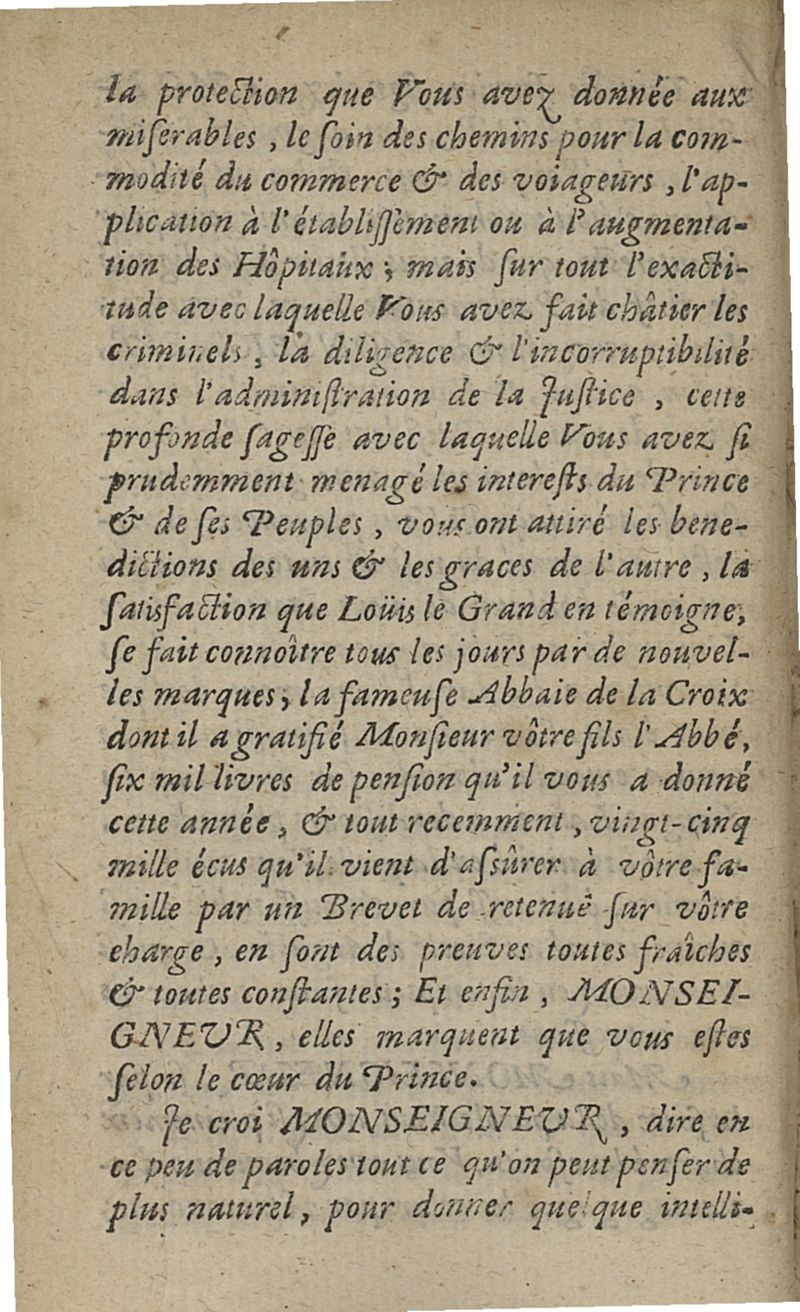 la protection que Vous avez donnée aux
miſerables , le ſoin des chemins pour la com-
modité du commerce & des voiageurs , l'ap-
plication à l'établiſſement ou à l'augmenta-
tion des Hôpitaux ; mais ſur tout l'exacti-
tude avec laquelle Vous avez fait châtier les
criminels , la diligence & l'incorruptibilité
dans l'adminiſtration de la Juſtice , cette
profonde ſageſſe avec laquelle Vous avez ſi
prudemment menagé les intereſts du Prince
& de ſes Peuples , vous ont attiré les bene-
dictions des uns & les graces de l'autre , la
ſatisfaction que Loüis le Grand en témoigne,
ſe fait connoître tous les jours par de nouvel-
les marques, la fameuſe Abbaie de la Croix
dont il a gratifié Monſieur vôtre fils l'Abbé,
ſix mil livres de penſion qu'il vous a donné
cette année , & tout recemment , vingt-cinq
mille écus qu'il vient d'aſſûrer à vôtre fa-
mille par un Brevet de retenuë ſur vôtre
charge , en ſont des preuves toutes fraîches
& toutes conſtantes ; Et enfin , MONSEI-
GNEVR , elles marquent que vous eſtes
ſelon le cœur du Prince.
Je croi MONSEIGNEVR , dire en
ce peu de paroles tout ce qu'on peut penſer de
plus naturel, pour donner quelque intelli-